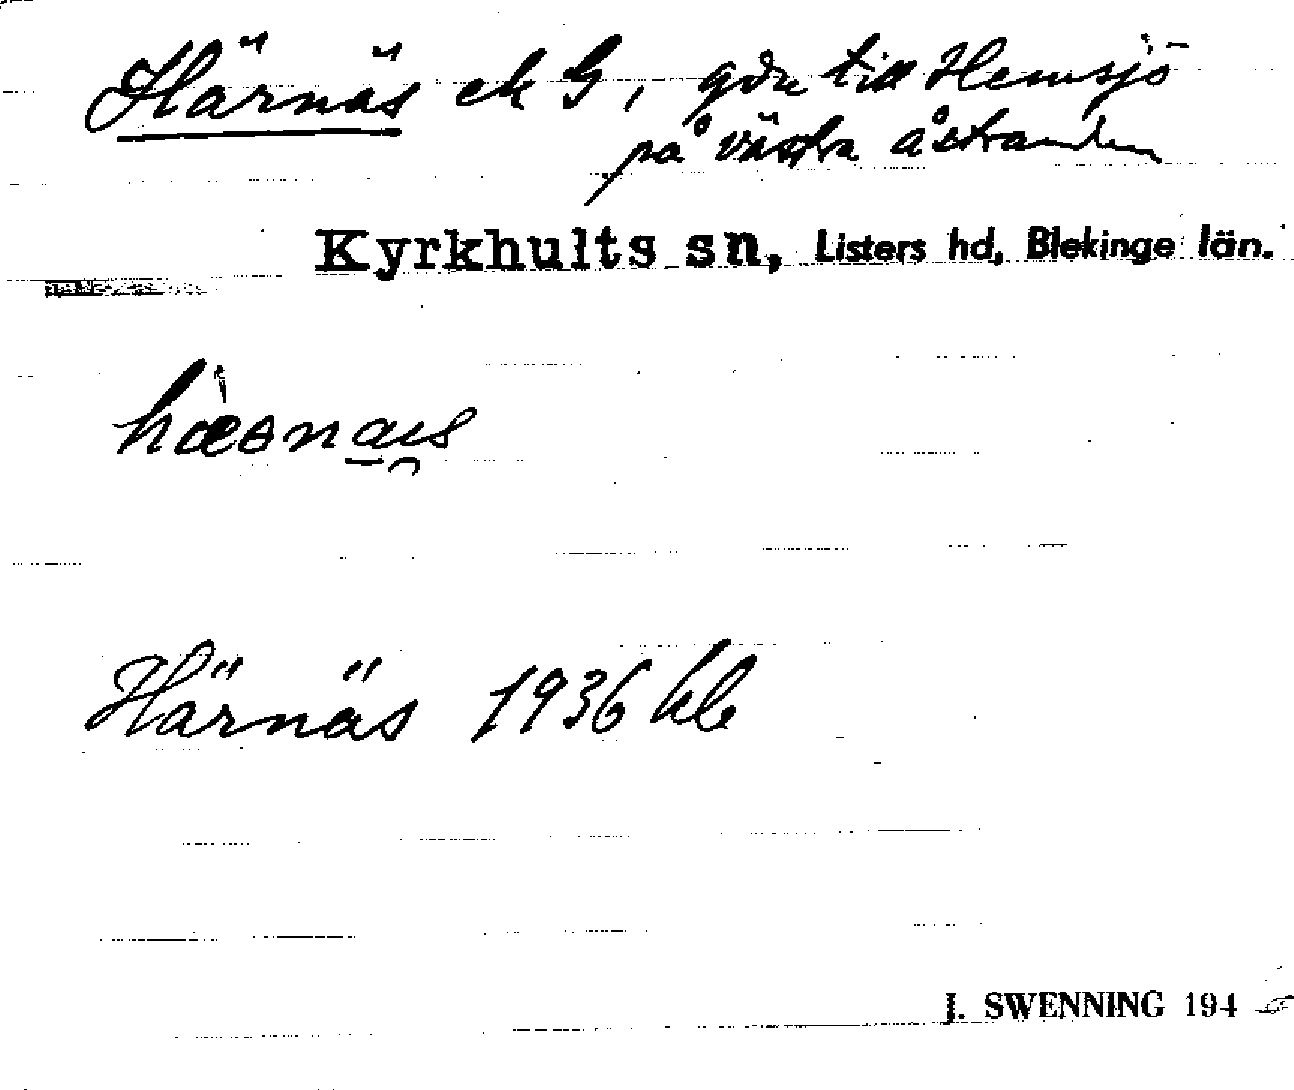 Härnäs ek G, gdn till Hemsjö
på västra åstranden
Kyrkhults sn, Listers hd, Blekinge län.
Härnäs 1936 kle
J. SWENNING 194